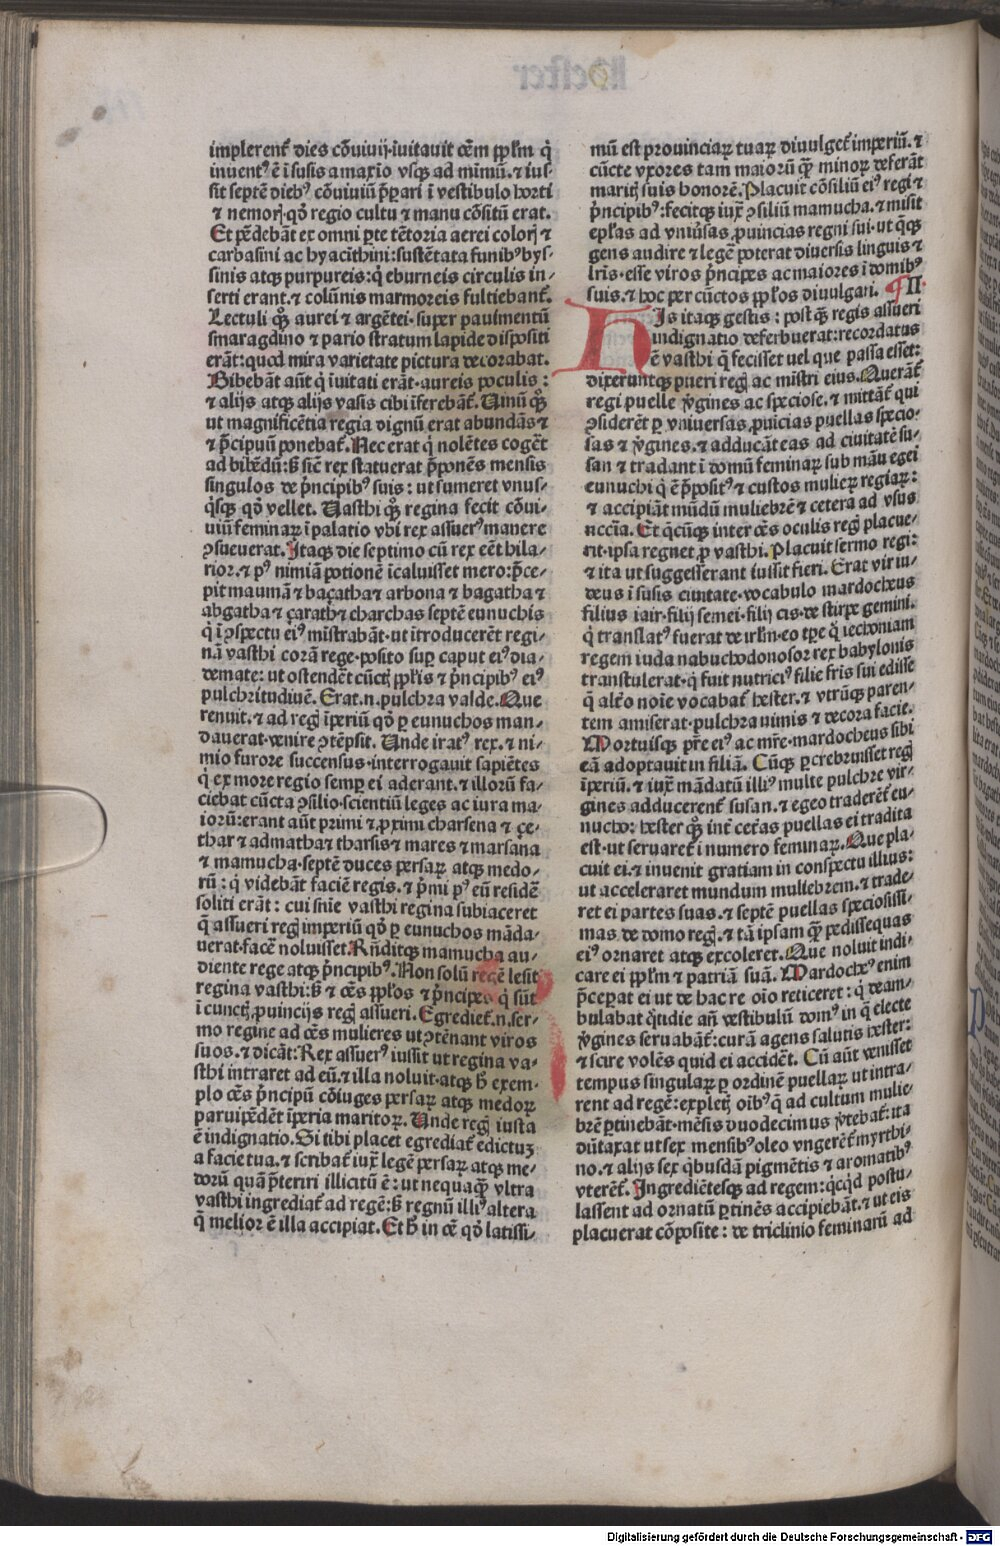 implerent᷑ dies cōuiuij·īuitauit oēm ppl̄m q̄
inuentꝰ ē ī susis a maxīo vsq̨ ad mīmū.⁊ ius-
sit septē diebꝰ cōuiuiū p̄pari ī vestibulo horti
⁊ nemorꝭ·qō regio cultu ⁊ manu cōsitū erat.
Et pēdebāt ex omni ꝑte tētoria aerei colorꝭ ⁊
carbasini ac hyacīthini:sustētata funibꝰ bys-
sinis atq̨ purpureis:q̄ eburneis circulis in-
serti erant.⁊ colūnis marmoreis fultiebant᷑.
Lectuli qꝫ aurei ⁊ argētei·super pauimentū
smaragdino ⁊ pario stratum lapide dispositi
erāt:quod mira varietate pictura decorabat.
Bibebāt aūt q̇ īuitati erāt·aureis poculis:
⁊ alijs atq̨ alijs vasis cibi īferebāt᷑. Uinū qꝫ
ut magnificētia regia dignū erat abundās ⁊
⁊ p̄cipuū ponebat᷑. Nec erat q̇ nolētes coget᷑
ad bibēdū:sꝫ sic̄ rex statuerat p̄ponēs mensis
singulos de p̄ncipibꝰ suis: ut sumeret vnus-
q̇sq̨ qō vellet. Uasthi qꝫ regina fecit cōui-
uiū feminaꝝ ī palatio vbi rex assuerꝰ manere
ꝯsueuerat. Itaq̨ die septimo cū rex eēt hila-
rior.⁊ pꝰ nimiā potionē īcaluisset mero:p̄ce-
pit maumā ⁊ baçatha ⁊ arbona ⁊ bagatha ⁊
abgatha ⁊ çarath ⁊ charchas septē eunuchis
q̇ ī ꝯspectu eiꝰ mīstrabāt·ut ītroducerēt regi-
nā vasthi corā rege·posito suꝑ caput eiꝰ dia-
demate: ut ostendēt cūctꝭ ppl̄is ⁊ p̄ncipibꝰ eiꝰ
pulchritudinē. Erat.n.pulchra valde. Que
renuit.⁊ ad regꝭ īperiū qō ꝑ eunuchos man-
dauerat·venire ꝯtēpsit. Unde iratꝰ rex.⁊ ni-
mio furore succensus·interrogauit sapiētes
q̇ ex more regio semꝑ ei aderant.⁊ illorū fa-
ciebat cūcta ꝯsilio·scientiū leges ac iura ma-
iorū:erant aūt primi ⁊ ꝓximi charsena ⁊ çe-
thar ⁊ admatha ⁊ tharsis ⁊ mares ⁊ marsana
⁊ mamucha·septē duces persaꝝ atq̨ medo-
rū : q̇ videbāt faciē regis.⁊ p̄mi pꝰ eū residē
soliti erāt : cui sn̄ie vasthi regina subiaceret
q̄ assueri regꝭ imperiū qō ꝑ eunuchos māda-
uerat·facē noluisset. Rn̄ditq̨ mamucha au-
diente rege atq̨ p̄ncipibꝰ. Non solū regē lesit
regina vasthi:sꝫ ⁊ oēs ppl̄os ⁊ p̄ncipes q̇ sūt
ī cunctꝭ ꝓuincijs regꝭ assueri. Egrediet᷑.n.ser-
mo regine ad oēs mulieres ut ꝯtēnant viros
suos.⁊ dicāt: Rex assuerꝰ iussit ut regina va-
sthi intraret ad eū.⁊ illa noluit·atq̨ h̄ exem-
plo oēs p̄ncipū cōiuges persaꝝ atq̨ medoꝝ
paruipēdēt īperia maritoꝝ. Unde regꝭ iusta
ē indignatio. Si tibi placet egrediat᷑ edictuꝫ
a facie tua.⁊ scribat᷑ iux̄ legē persaꝝ atq̨ me-
dorū quā p̄teriri illicitū ē : ut nequaq̄ꝫ vltra
vasthi ingrediat᷑ ad regē:sꝫ regnū illiꝰ altera
q̄ melior ē illa accipiat. Et h̄ in oē qō latissi-
mū est prouinciaꝝ tuaꝝ diuulget᷑ imperiū.⁊
cūcte vxores tam maiorū q̄ꝫ minoꝝ deferāt
maritꝭ suis honorē. Placuit cōsiliū eiꝰ regi ⁊
p̄ncipibꝰ:fecitq̨ iux̄ ꝯsiliū mamucha.⁊ misit
ep̄las ad vniūsas ꝓuincias regni sui·ut q̄q̨
gens audire ⁊ legē poterat diuersis linguis ⁊
lr̄is·esse viros p̄ncipes ac maiores ī domibꝰ
suis.⁊ hoc per cūctos ppl̄os diuulgari. ¶ II.
HIs itaq̨ gestis : postq̄ꝫ regis assueri
indignatio deferbuerat:recordatus
ē vasthi q̄ fecisset uel que passa esset:
dixeruntq̨ pueri regꝭ ac mīstri eius. Querāt᷑
regi puelle v̄gines ac speciose.⁊ mittāt᷑ qui
ꝯsiderēt ꝑ vniuersas ꝓuīcias puellas specio-
sas ⁊ v̄gines.⁊ adducāt eas ad ciuitatē su-
san ⁊ tradant ī domū feminaꝝ sub māu egei
eunuchi q̇ ē p̄positꝰ ⁊ custos mulieꝝ regiaꝝ:
⁊ accipiāt mūdū muliebrē ⁊ cetera ad vsus
nccīa. Et q̄cūq̨ inter oēs oculis regꝭ placue-
rit·ipsa regnet ꝓ vasthi. Placuit sermo regi:
⁊ ita ut suggesserant iussit fieri. Erat vir iu-
deus ī susis ciuitate·vocabulo mardocheus
filius iair·filij semei·filij cis·de stirpe gemini.
q̇ translatꝰ fuerat de irl̄m·eo tꝑe q̇ iechoniam
regem iuda nabuchodonosor rex babylonis
transtulerat·q̇ fuit nutriciꝰ filie fr̄is sui edisse
q̄ alt̄o noīe vocabat᷑ hester.⁊ vtrūq̨ paren-
tem amiserat·pulchra nimis ⁊ decora facie.
Mortuisq̨ pr̄e eiꝰ ac mr̄e·mardocheus sibi
eā adoptauit in filiā. Cūq̨ ꝑcrebruisset regꝭ
īperiū.⁊ iux̄ mādatū illiꝰ multe pulchre vir-
gines adducerent᷑ susan.⁊ egeo traderēt᷑ eu-
nucho: hester qꝫ int̄ cet̄as puellas ei tradita
est·ut seruaret᷑ ī numero feminaꝝ. Que pla-
cuit ei.⁊ inuenit gratiam in conspectu illius:
ut acceleraret mundum muliebrem.⁊ trade-
ret ei partes suas.⁊ septē puellas speciosissi-
mas de domo regꝭ.⁊ tā ipsam q̄ꝫ pedissequas
eiꝰ ornaret atq̨ excoleret. Que noluit indi-
care ei ppl̄m ⁊ patriā suā. Mardocheꝰ enim
p̄ceperat ei ut de hac re oīo reticeret : q̇ deam-
bulabat q̇tidie añ vestibulū domꝰ in q̄ electe
v̄gines seruabāt᷑:curā agens salutis hester:
⁊ scire volēs quid ei accidēt. Cū aūt venisset
tempus singulaꝝ ꝑ ordinē puellaꝝ ut intra-
rent ad regē:expletꝭ oībꝰ q̄ ad cultum mulie-
brē ꝑtinebāt·mēsis duodecimus v̄tebat᷑:ita
dūtaxat ut sex mensibꝰ oleo vngerēt᷑ myrthi-
no.⁊ alijs sex q̇busdā pigmētis ⁊ aromatibꝰ
vterēt᷑. Ingrediētesq̨ ad regem:q̇cq̇d postu-
lassent ad ornatū ꝑtinēs accipiebāt.⁊ ut eis
placuerat cōposite : de triclinio feminarū ad
Digitalisierung gefördert durch die Deutsche Forschungsgemeinschaft - DFG